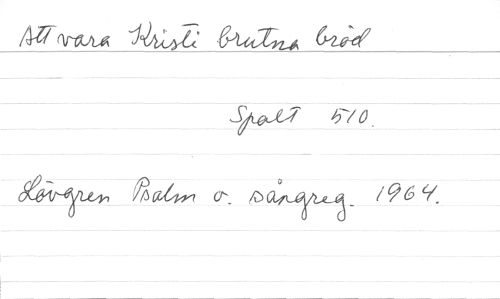 Att vara Kristi brutna bröd
Spalt 510.
Lövgren Psalm o. sångreg. 1964.